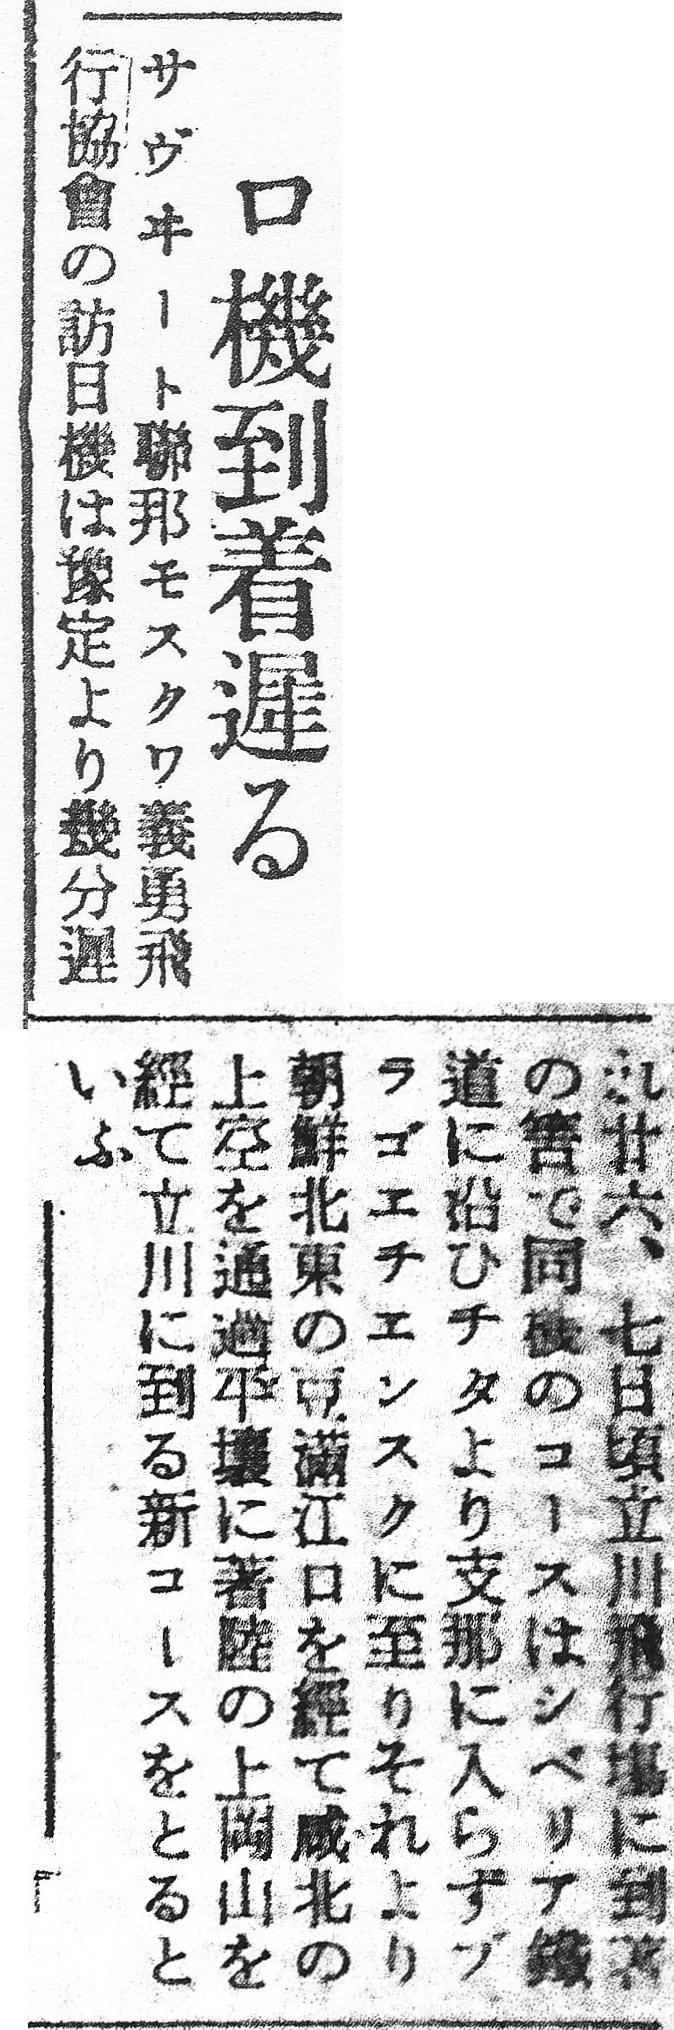 ロ機到着遲る
サヴヰート聯邦モスクワ義勇飛
行協會の訪日機は豫定より幾分遲
れ廿六、七日頃立川飛行場に到著
の筈で同機のコースはシベリア鐵
道に沿ひチタより支那に入らずブ
ラゴエチエンスクに至りそれより
朝鮮北東の豆滿江口を經て咸北の
上空を通過平壤に著陸の上岡山を
經て立川に到る新コースをとると
いふ